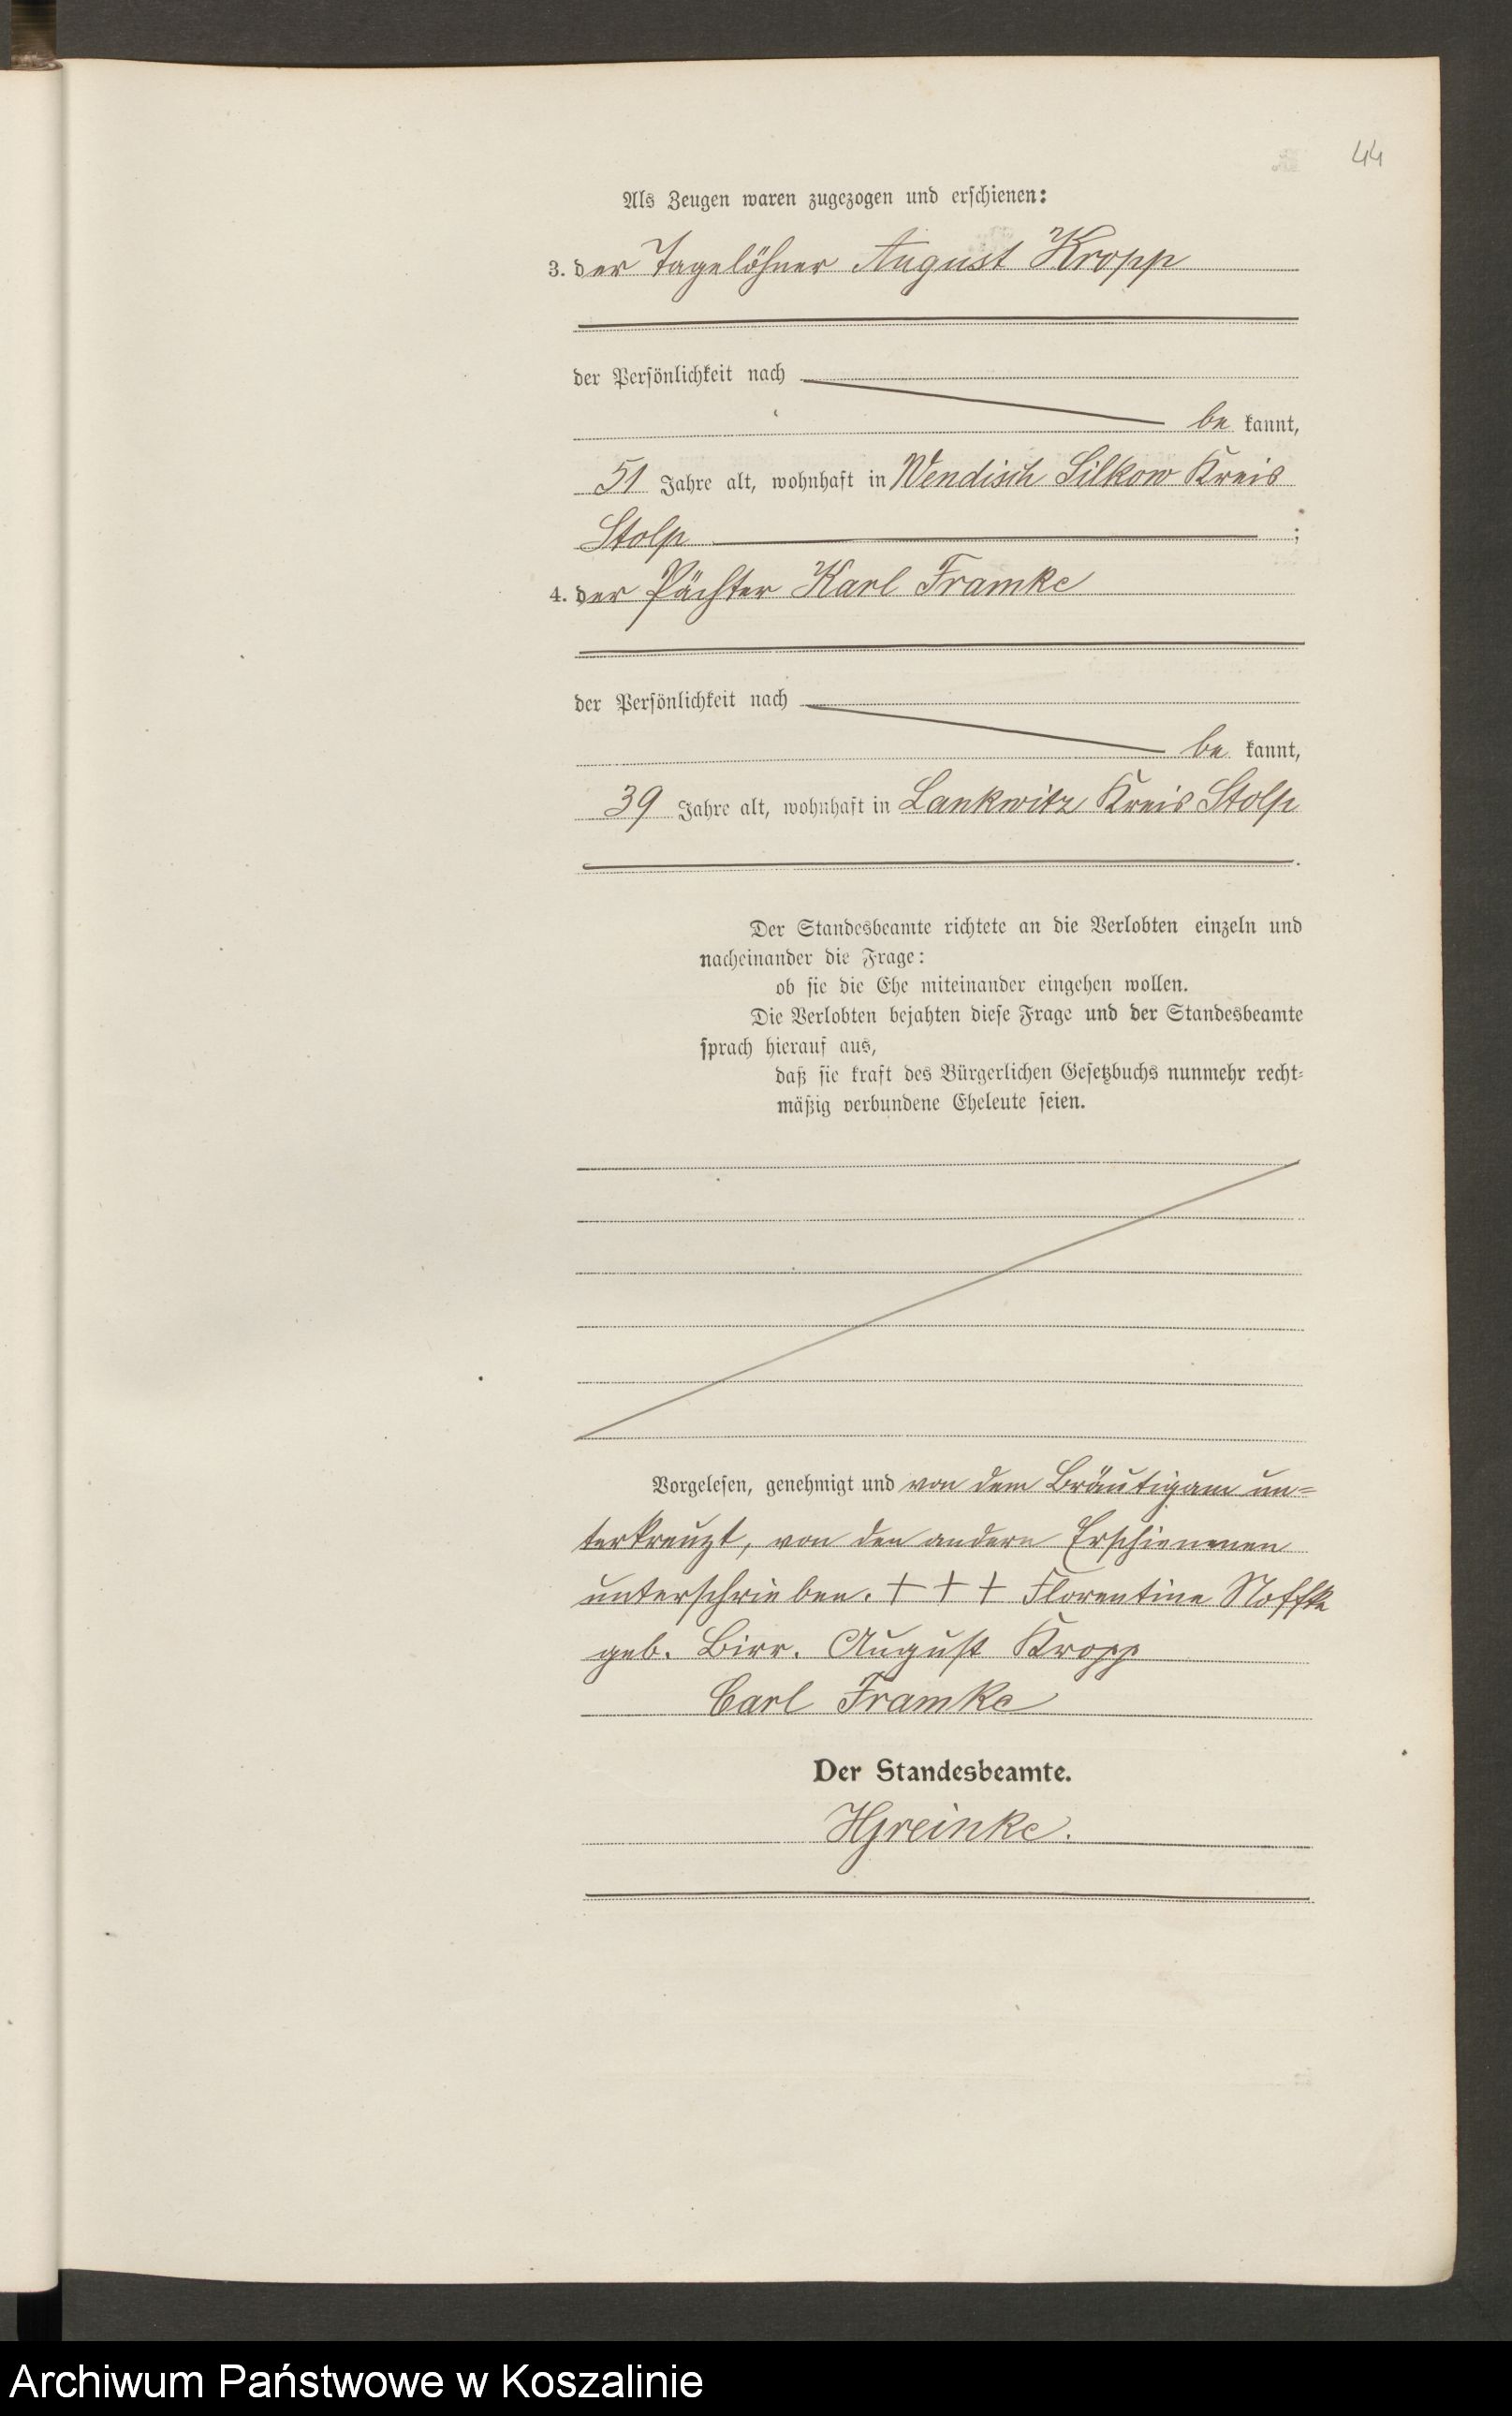 44
Als Zeugen waren zugezogen und erschienen:
3. der Tagelöhner August Kropp
der Persönlichkeit nach
be kannt,
51 Jahre alt, wohnhaft in Wendisch Silkow Kreis
Stolp ;
4. der Pächter Karl Framke
der Persönlichkeit nach
be kannt,
39 Jahre alt, wohnhaft in Lankwitz Kreis Stolp
.
Der Standesbeamte richtete an die Verlobten einzeln und
nacheinander die Frage:
ob sie die Ehe miteinander eingehen wollen.
Die Verlobten bejahten diese Frage und der Standesbeamte
sprach hierauf aus,
daß sie kraft des Bürgerlichen Gesetzbuchs nunmehr recht-
mäßig verbundene Eheleute seien.
Vorgelesen, genehmigt und von dem Bräutigam un=
terkreuzt, von den andern Erschienenen
unterschrieben. + + + Florentine Noffke
geb. Birr. August Kropp
Carl Framke
Der Standesbeamte.
HGreinke.
Archiwum Państwowe w Koszalinie